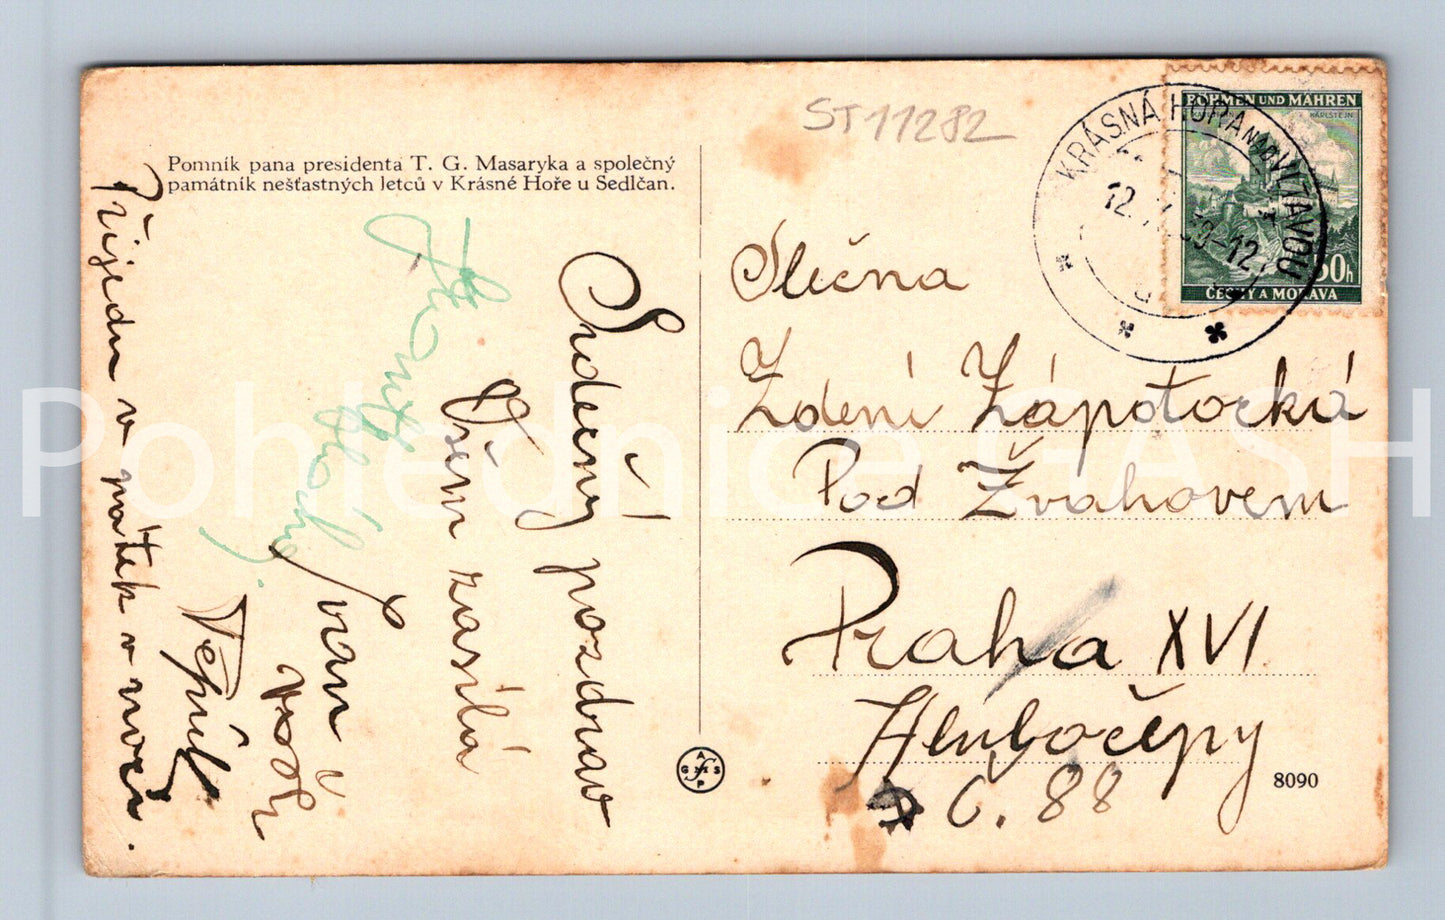 Pomník pana presidenta T. G. Masaryka a společný
památník nešťastných letců v Krásné Hoře u Sedlčan.
ST11282
KRÁSNÁ HORA NAD VLTAVOU
12.
39-12
BÖHMEN UND MÄHREN
KARLSTEJN
50h
ČECHY A MORAVA
Slečna
Zdeni Zápotocká
Pod Žvahovem
Praha XVI.
Hlubočepy
č. 88
8090
Srdečný pozdrav
Všem zasílá
Váš
Pepík
Přijedu v pátek v noci.
GRAPS
Pohlednice GASH